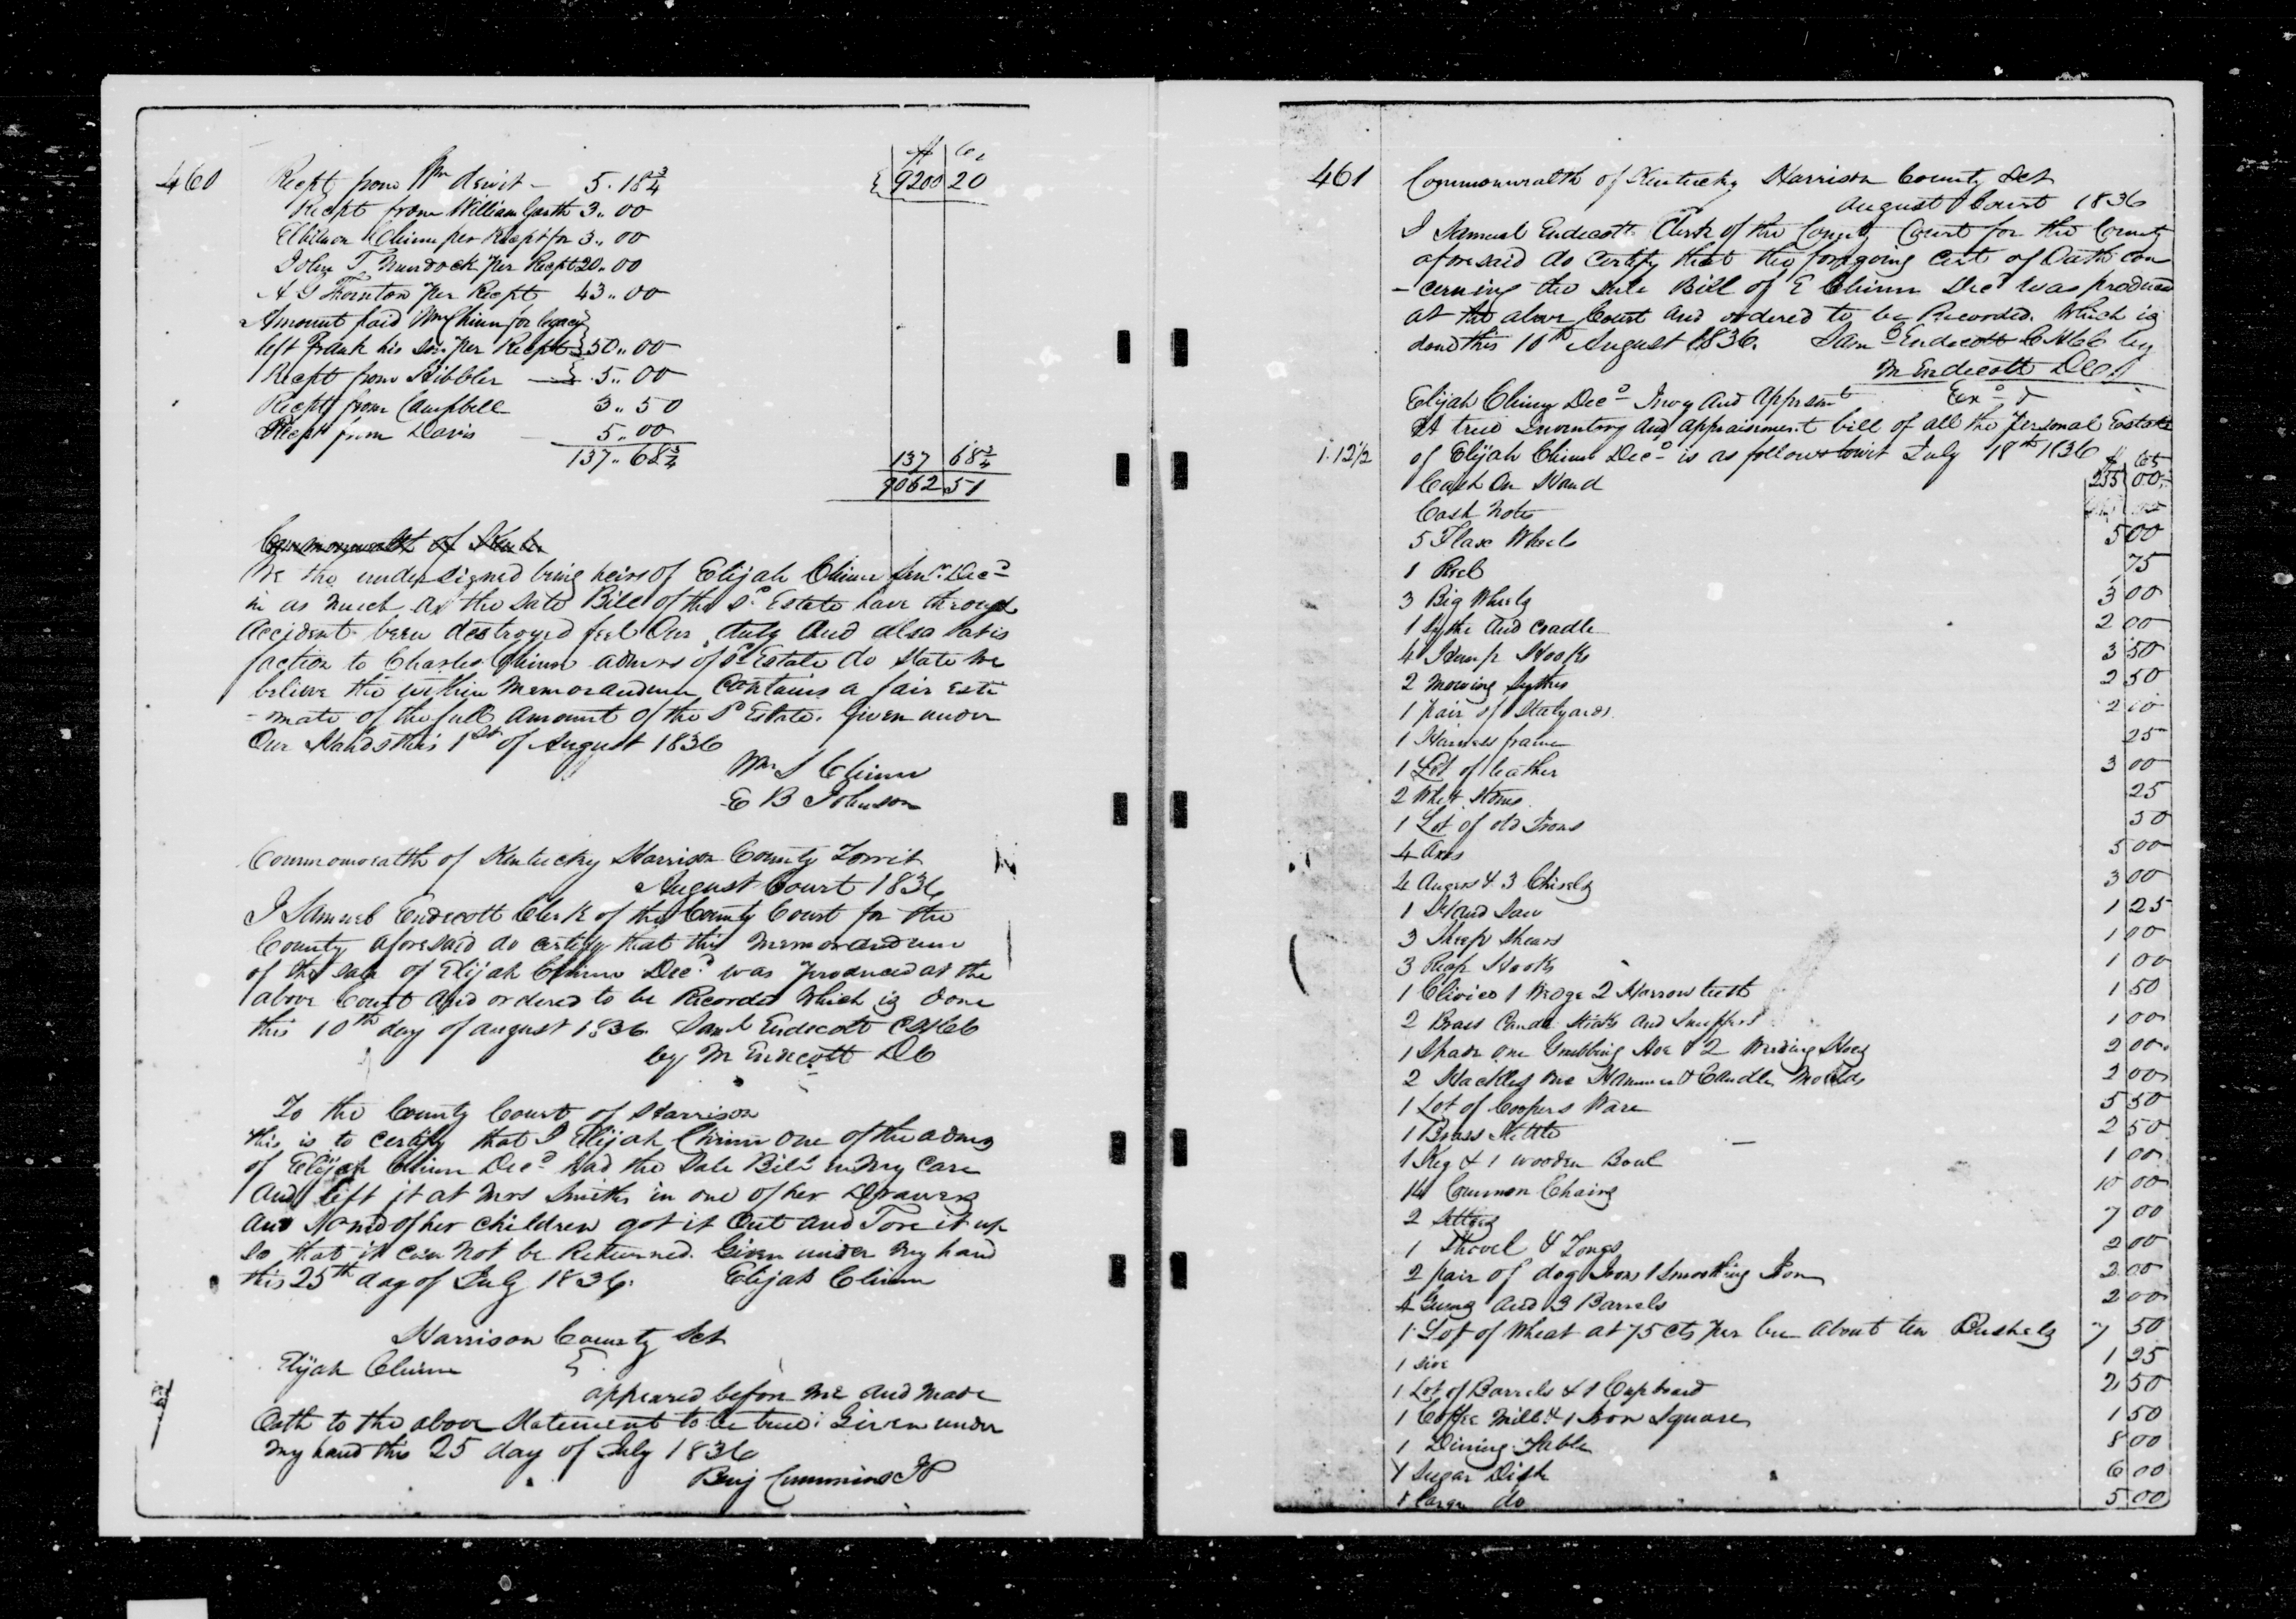 460
$ Cts
Recpt from Wm dewit - 5.18 3/4 { 9200 20
Recpt from William Garth 3,,00
Chinn per Recpt for 3,,00
John T Murdock per Recpt 20,,00
A G Thornton per Recpt 43,,00
Amount paid Wm Chinn for legacy
left Frank his Son per Recpt } 50,,00
Recpt from Hibbler } 5,,00
Recpt from Campbell 3,,50
Recpt from Davis 5,,00
137,,68 3/4 137 68 3/4
9062 51
Commonwealth of
We the undersigned being heirs of Elijah Chinn Senr. Decd
in as much as the Sale Bill of the sd Estate have through
Accident been destroyed feel Our duty And also Satis
faction to Charles Chinn admrs of sd Estate do State we
believe the within Memorandum Contains a fair Esti
-mate of the full Amount of the sd Estate. Given under
Our Hands this 1st of August 1836
Wm S Chinn
E B Johnson
Commonwealth of Kentucky Harrison County Towit
August Court 1836
I Samuel Endecott Clerk of the County Court for the
County aforesaid do certify that this Memorandum
of the Sale of Elijah Chinn Decd was produced at the
above Court And ordered to be Recorded Which is done
this 10th day of august 1836. Saml Endecott CHCC
by M Endecott DC
To the County Court of Harrison
this is to certify that I Elijah Chinn one of the admrs
of Elijah Chinn Decd had the Sale Bill in My Care
And left it at Mrs Smiths in one of her Drawers
and of her children got it Out and Tore it up
So that it can not be Returned. Given under My hand
this 25th day of July 1836. Elijah Chinn
Harrison County Sct
Elijah Chinn }
appeared before me and made
Oath to the above Statement to be true: Given under
my hand this 25 day of July 1836
Benj Cummins JP
461
Commonwealth of Kentucky Harrison County Sct
August Court 1836
I Samuel Endecott Clerk of the County Court for the County
aforesaid do certify that the foregoing Cert of Oath con
-cerning the Sale Bill of E Chinn Decd was produced
at the above Court And ordered to be Recorded Which is
done this 10th August 1836. Saml Endecott CHCC by
M Endecott DC
Elijah Chinn Decd Invoy And Apprsmt Exd
A true Inventory and appraisment bill of all the Personal Estate
1.12 1/2 of Elijah Chinn Decd is as follows towit July 18th 1836 $ Cts
Cash On Hand 255 00
Cash Notes
5 Flax Wheels 5 00
1 Reel 75
3 Big Wheels 3 00
1 Sythe and Cradle 2 00
4 Hemp Hooks 3 50
2 Mowing Sythes 2 50
1 pair of Stelyards
1 Harness frame 25
1 Lot of leather 3 00
2 Whet Stones 25
1 Lot of old Irons 50
4 Axes 5 00
4 Augers & 3 Chisels 3 00
1 Hand Saw 1 25
3 Sheep Shears 1 00
3 Reap Hooks 1 00
1 Clivies 1 Wedge 2 Harrow teeth 1 50
2 Brass Candle Sticks And Snuffers 1 00
1 Spade One Grubbing Hoe & 2 Weeding Hoes 2 00
2 Hackles One Hammer & Candle Moulds 2 00
1 Lot of Coopers Ware 5 50
1 Brass Kettle 2 50
1 Keg & 1 wooden Bowl 1 00
14 Common Chairs 10 00
2 Settees 7 00
1 Shovel & Tongs 2 00
2 pair of dog Irons 1 Smoothing Iron 2 00
4 Guns and 3 Barrels 2 00
1 Lot of Wheat at 75 cts per bu about ten Bushels 7 50
1 Sive 1 25
1 Lot of Barrels & 1 Cupboard 2 50
1 Coffee Mill & 1 Iron Square 1 50
1 Dining Table 8 00
1 Sugar Dish 6 00
1 large do 5 00